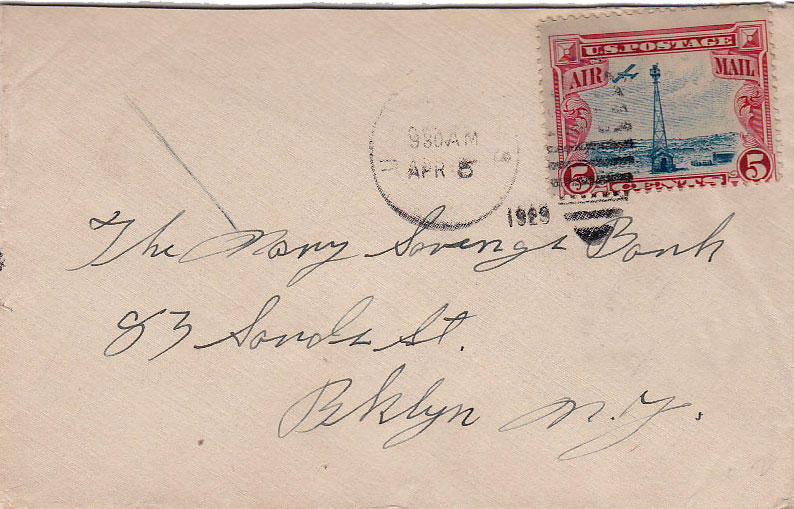 U.S. POSTAGE
AIR MAIL
930 AM
APR 5
5 5
1929
The Navy Savings Bank
83 Sands St.
Bklyn N.Y.